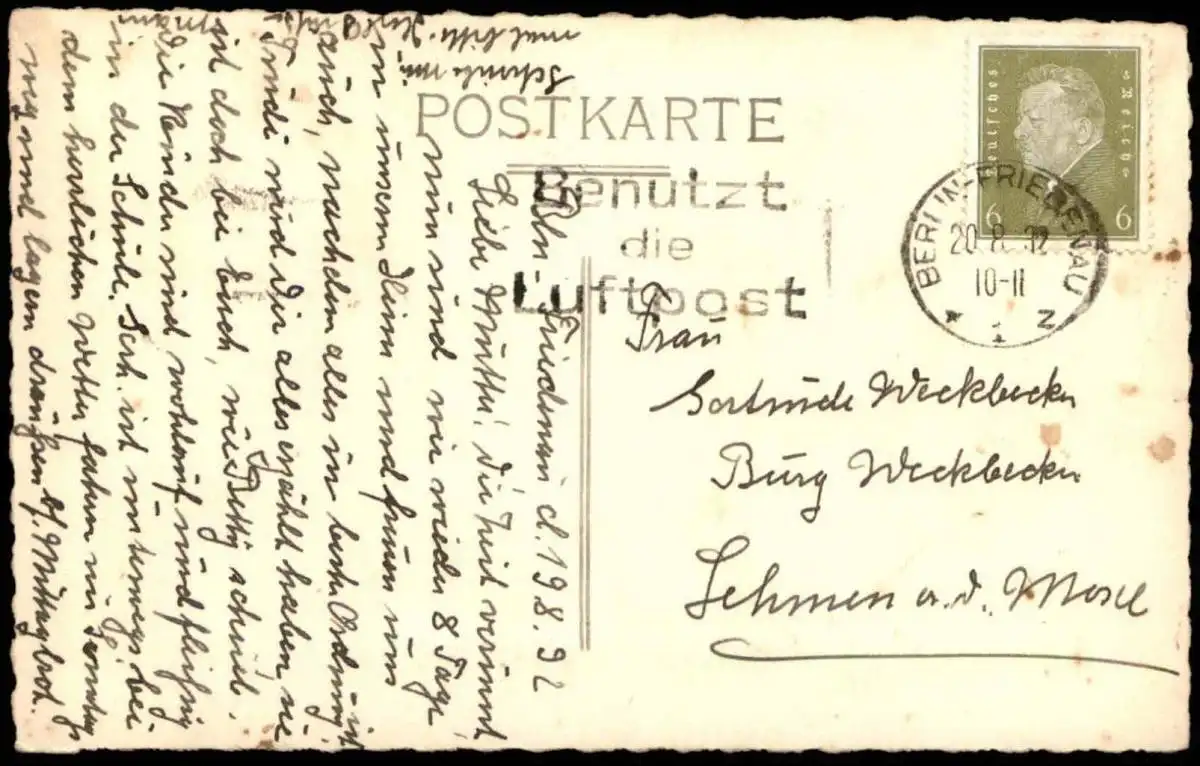 POSTKARTE
Benutzt
die
Luftpost
Deutsches Reich
6 6
BERLIN-FRIEDENAU
20.8.32
10-11
* 1 z
Frau
Gertrude Weckbecker
Burg Weckbecker
Lehmen a. d. Mosel
Bln. Friedenau d. 19.8.32
Liebe Mutti! Die Zeit verrinnt
nun sind wir wieder 8 Tage
in unserm Heim und freuen uns
auch, nachdem alles in bester Ordnung ist
Trudi wird Dir alles erzählt haben sie
ist doch bei Euch, wie Betty schrieb.
Die Kinder sind wohlauf und fleißig
in der Schule. Serh. ist unterwegs bei
dem herrlichen Wetter fahren wir Sonntags
weg und lagern draußen bis
Schreibe mir
mal bitte.